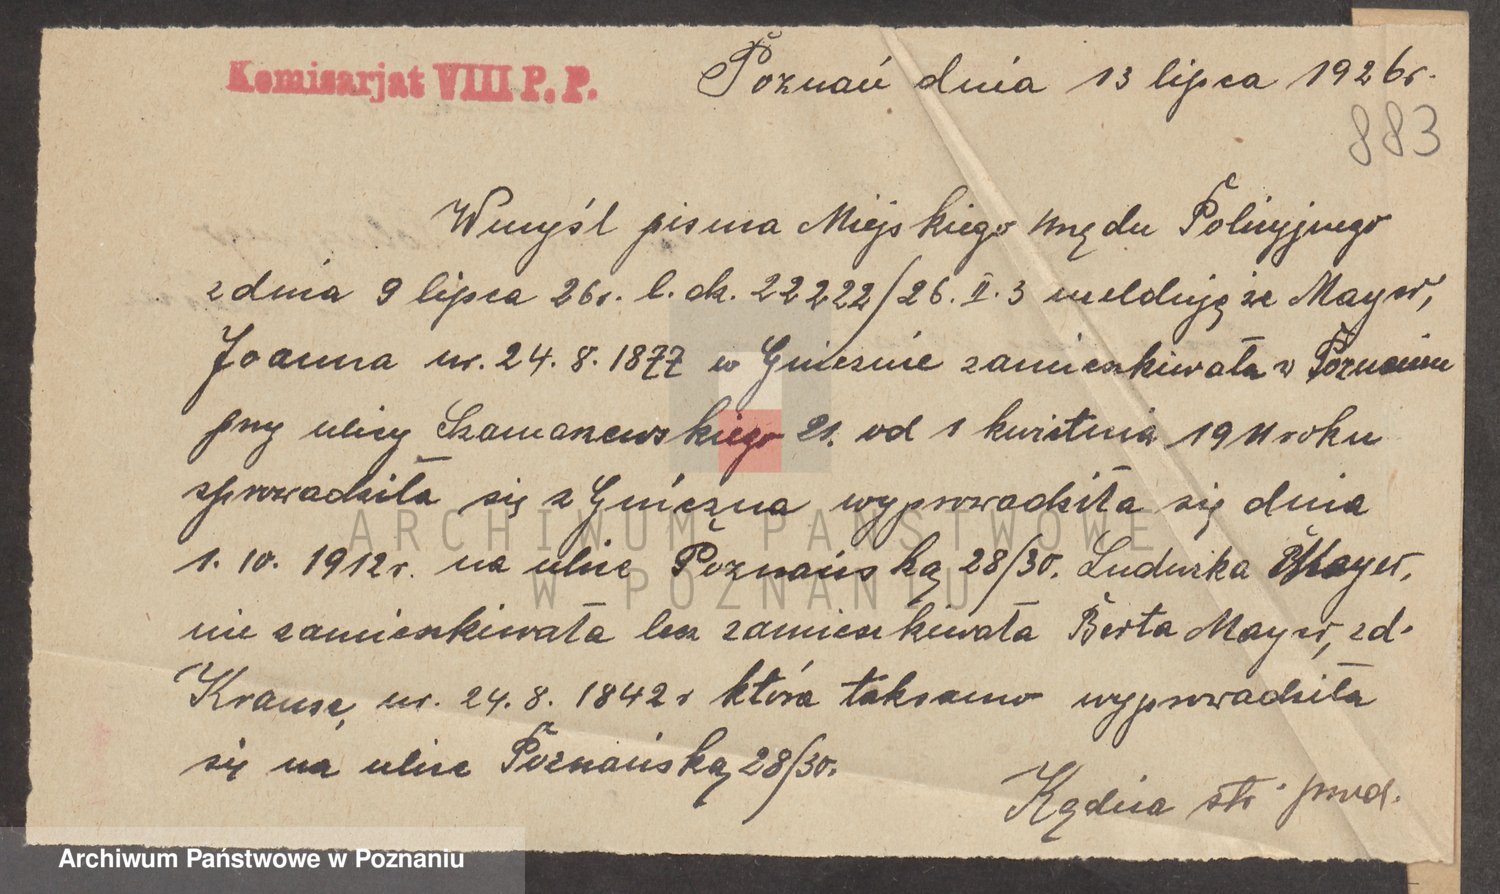 Komisarjat VIII P. P.
Poznań dnia 13 lipca 1926r.
883
Wmyśl pisma Miejskiego Urzędu Policyjnego
zdnia 9 lipca 26r. l. dz. 22222/26. II. 3 melduję że Mayer,
Joanna ur. 24. 8. 1877 w Gnieznie zamieszkiwała w Poznaniu
przy ulicy Szamarzewskiego 21. od 1 kwietnia 1911 roku
sprowadziła się z Gniezna wyprowadziła się dnia
1. 10. 1912r. na ulice Poznańską 28/30. Ludwika Mayer,
nie zamieszkiwała lecz zamieszkiwała Berta Mayer, zd.
Krause, ur. 24. 8. 1842r która taksamo wyprowadziła
się na ulice Poznańską 28/30.
Kędzia str. przod.
ARCHIWUM PAŃSTWOWE
W POZNANIU
Archiwum Państwowe w Poznaniu